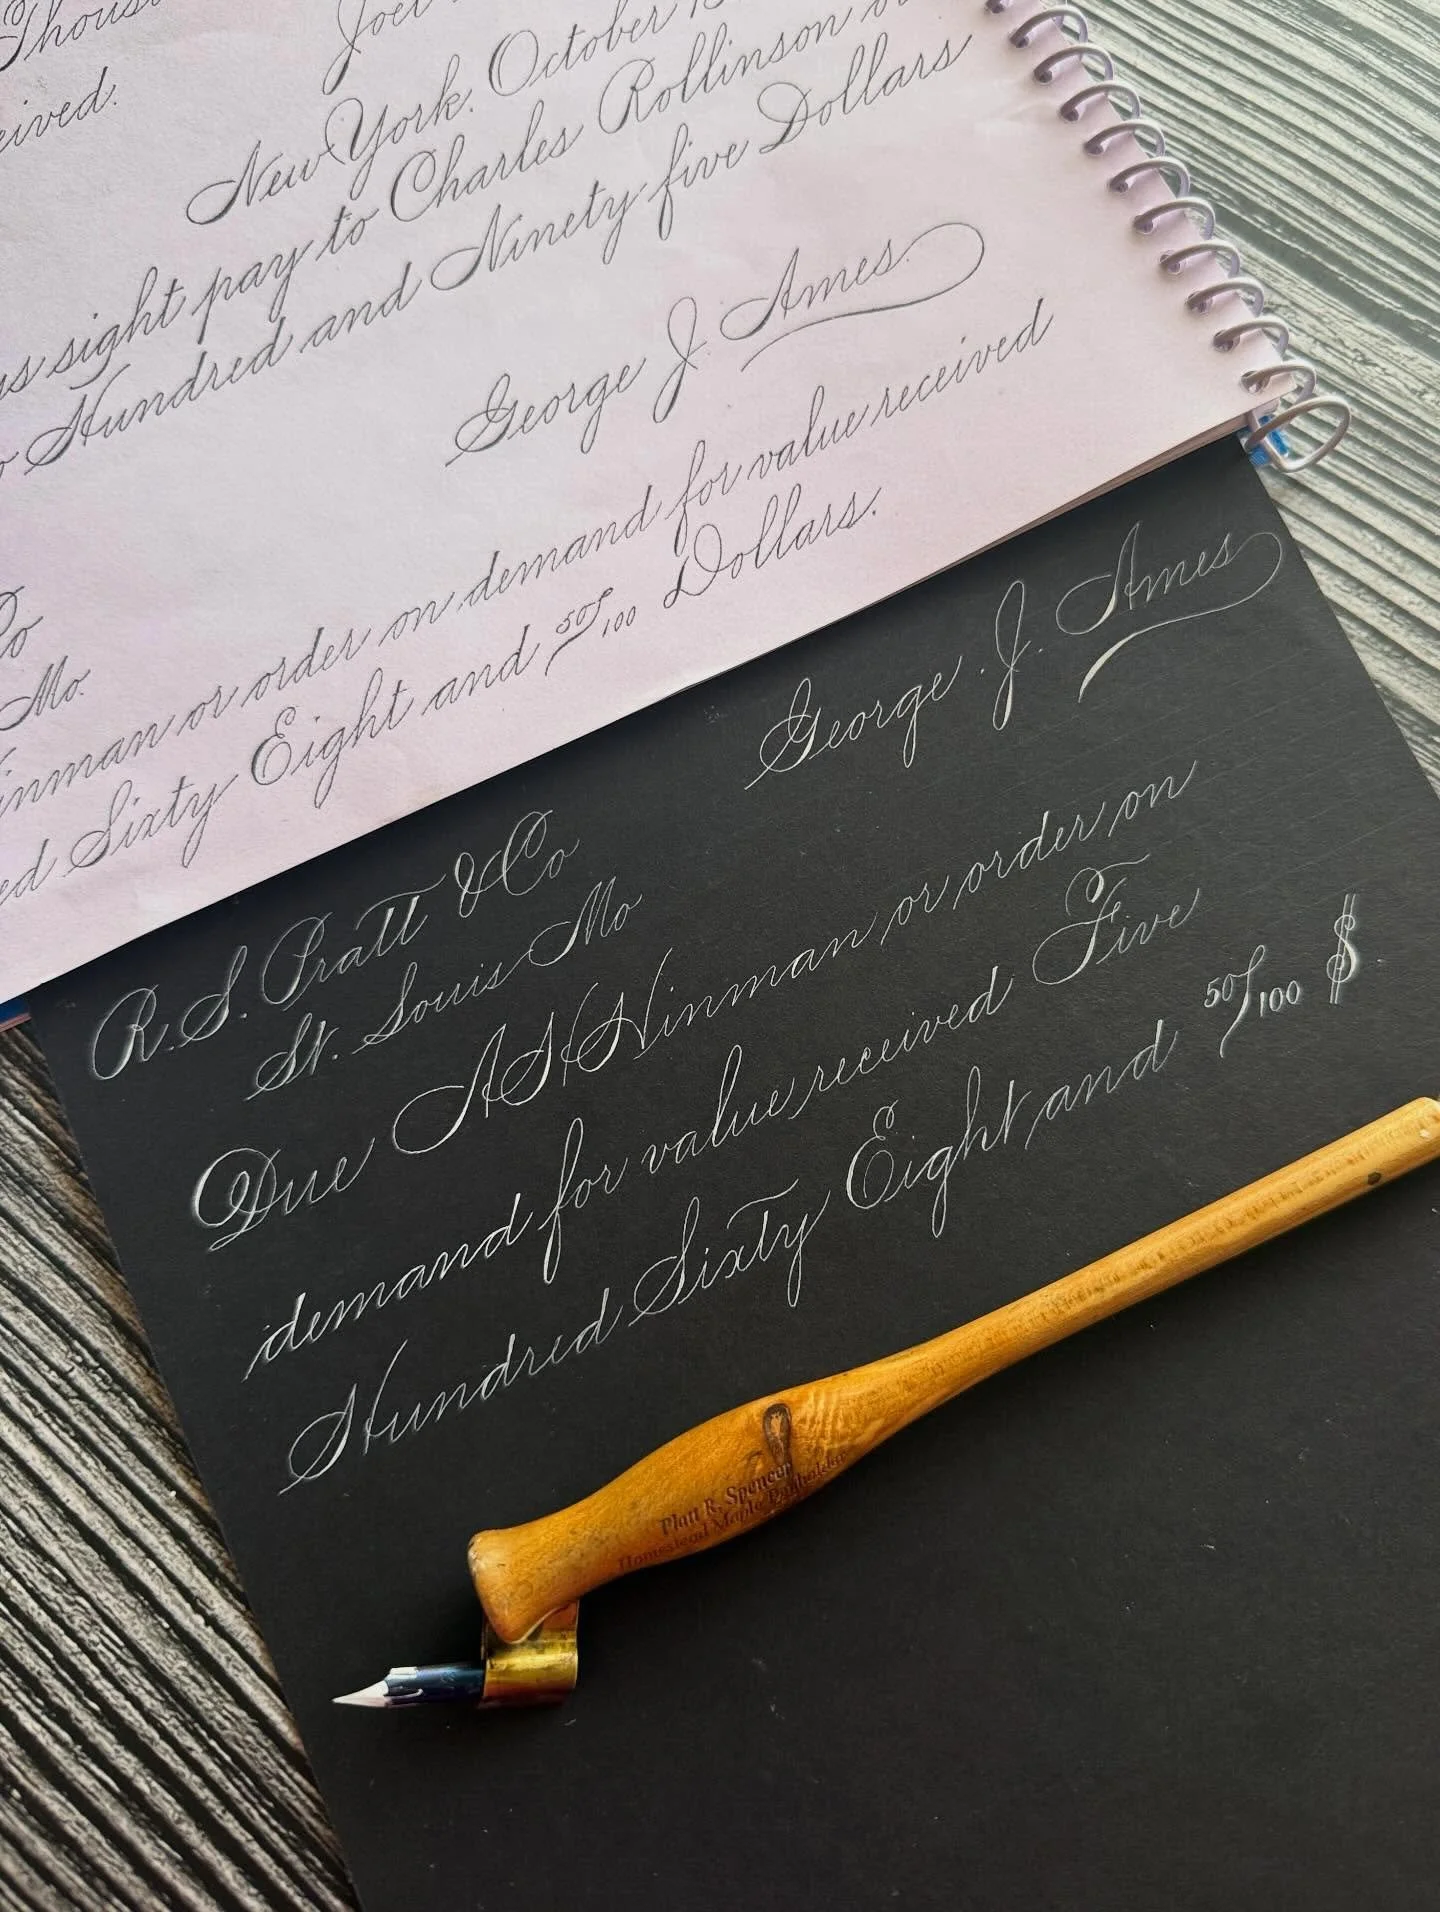 Thous
Joel
eived.
New York. October 15
sight pay to Charles Rollinson or
Hundred and Ninety five Dollars
George J. Ames.
Co
Mo.
inman or order on demand for value received
ed Sixty Eight and 50/100 Dollars.
George. J. Ames
R. S. Pratt & Co
St. Louis Mo
Due A H Hinman or order on
demand for value received Five
Hundred Sixty Eight and 50/100 $
Platt R. Spencer
Homestead Maple Penholder